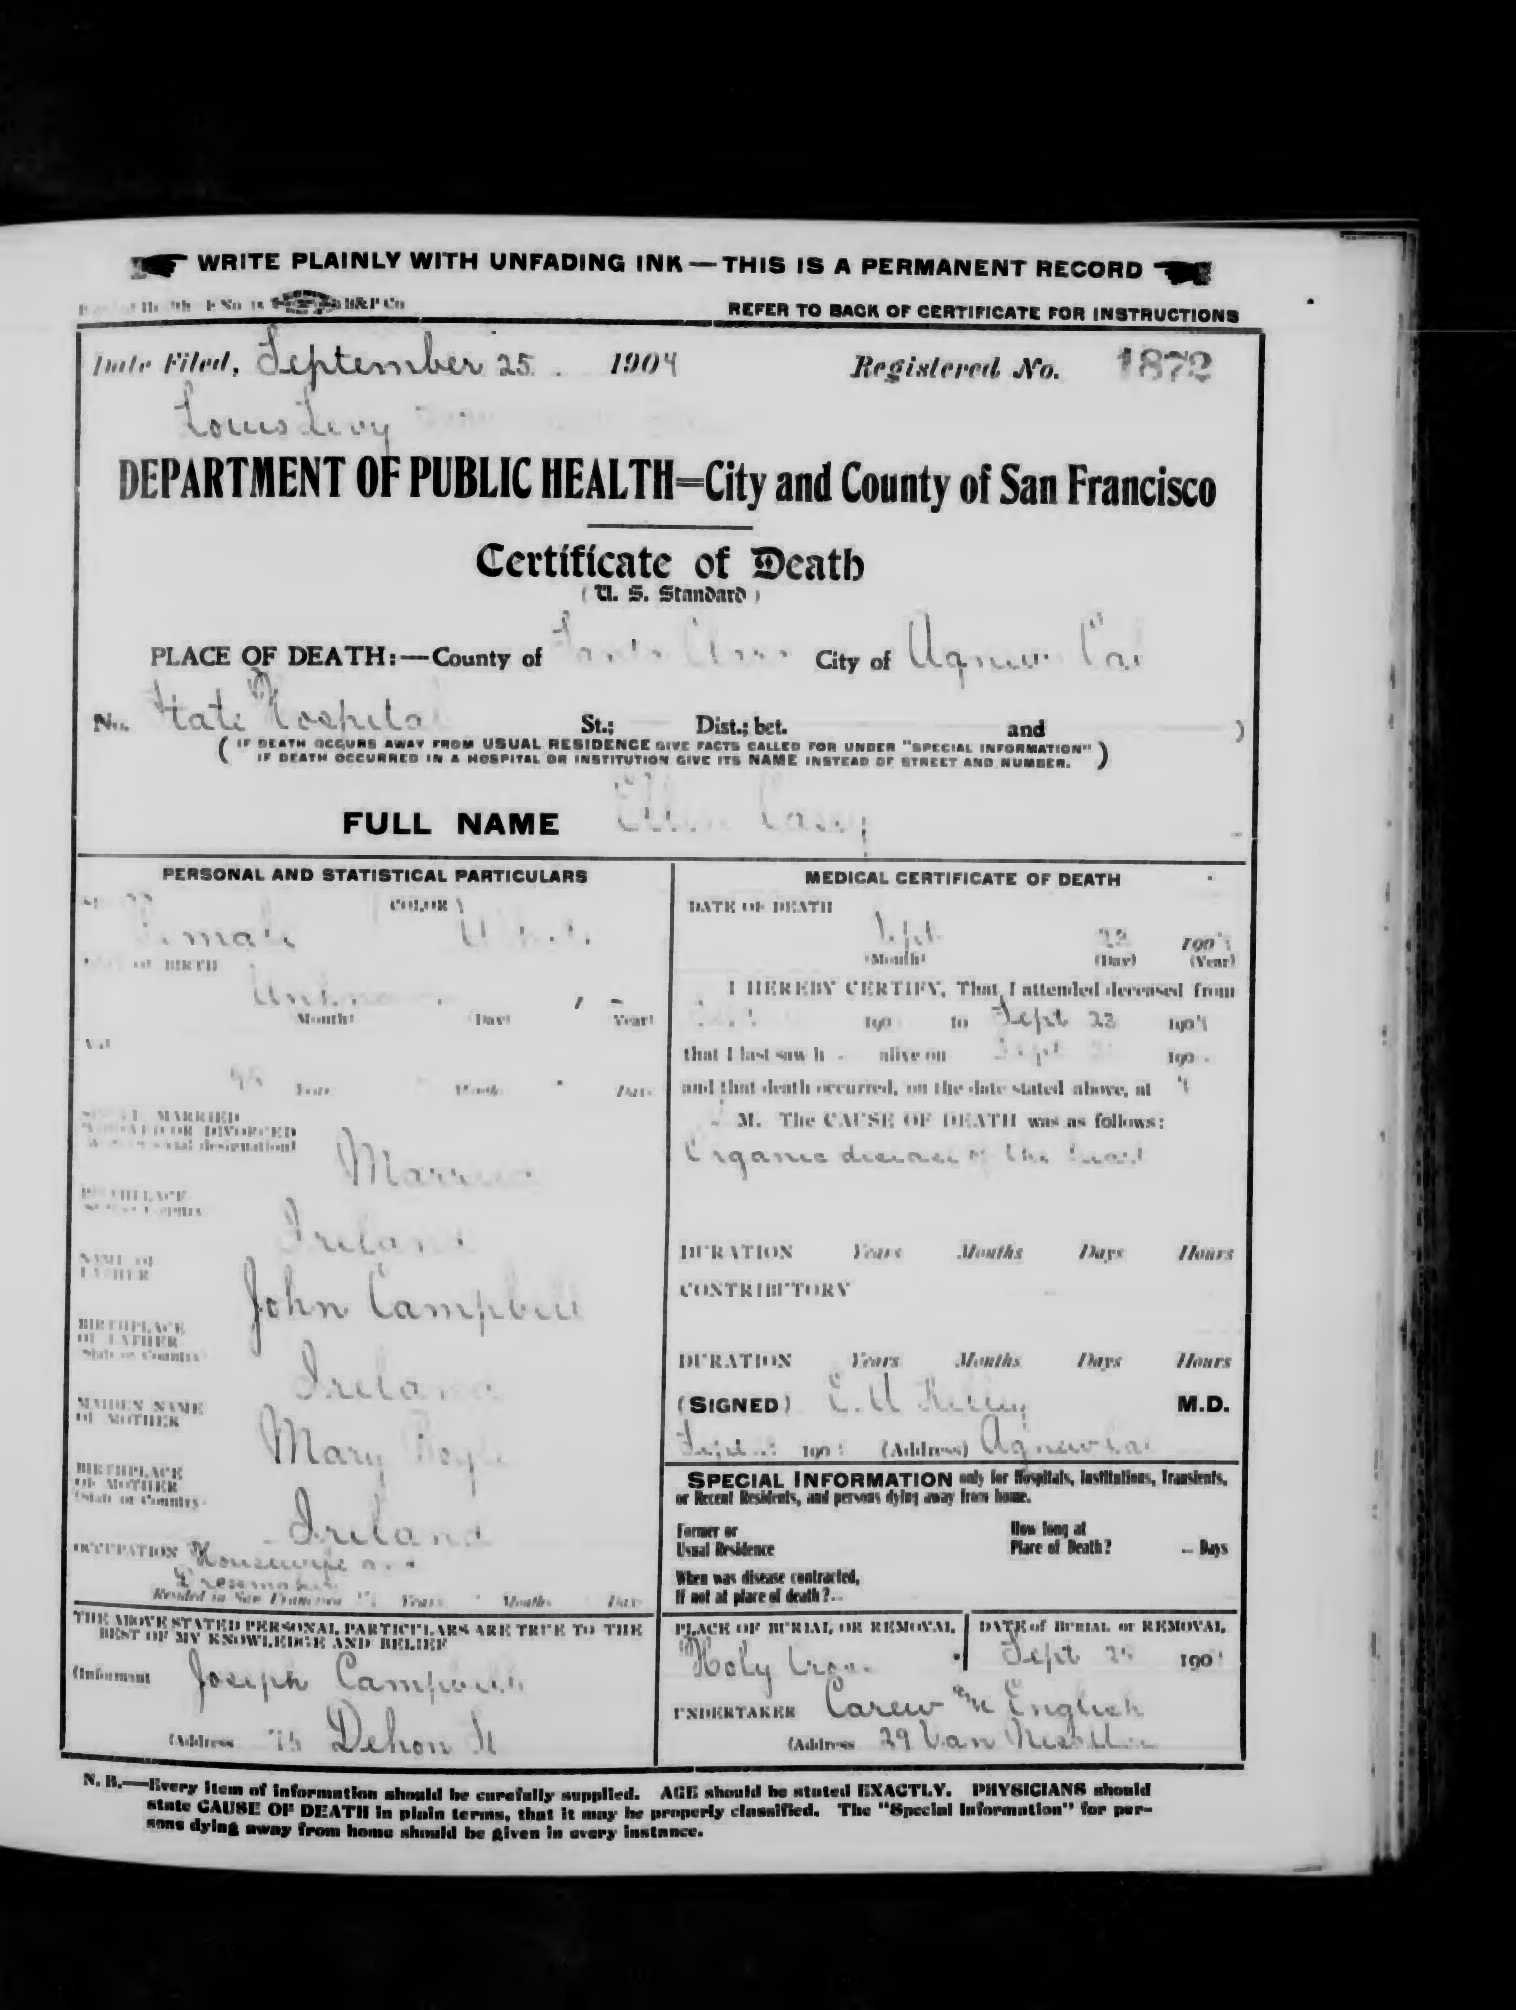 WRITE PLAINLY WITH UNFADING INK — THIS IS A PERMANENT RECORD
H&P Co
REFER TO BACK OF CERTIFICATE FOR INSTRUCTIONS
Date Filed, September 25. 1904 Registered No. 1872
Louis Levy
DEPARTMENT OF PUBLIC HEALTH=City and County of San Francisco
Certificate of Death
(U. S. Standard)
PLACE OF DEATH:—County of Santa Clara City of Agnew Cal
No. State Hospital St.; Dist.; bet. and )
( IF DEATH OCCURS AWAY FROM USUAL RESIDENCE GIVE FACTS CALLED FOR UNDER "SPECIAL INFORMATION" )
IF DEATH OCCURRED IN A HOSPITAL OR INSTITUTION GIVE ITS NAME INSTEAD OF STREET AND NUMBER.
FULL NAME Ellen Casey
PERSONAL AND STATISTICAL PARTICULARS
COLOR
Female White
OF BIRTH
Unknown
(Month) (Day) (Year)
Years Months Days
SINGLE, MARRIED
WIDOWED OR DIVORCED
(Write in social designation)
Married
BIRTHPLACE
(State or Country)
Ireland
NAME OF
FATHER
John Campbell
BIRTHPLACE
OF FATHER
(State or Country)
Ireland
MAIDEN NAME
OF MOTHER
Mary Boyle
BIRTHPLACE
OF MOTHER
(State or Country)
Ireland
OCCUPATION Housewife and
Dressmaker
Resided in San Francisco Years Months Days
THE ABOVE STATED PERSONAL PARTICULARS ARE TRUE TO THE
BEST OF MY KNOWLEDGE AND BELIEF
(Informant Joseph Campbell
(Address 75 Dehon St
MEDICAL CERTIFICATE OF DEATH
DATE OF DEATH
Sept. 22 1904
(Month) (Day) (Year)
I HEREBY CERTIFY, That I attended deceased from
190 to Sept 22 1904
that I last saw h alive on Sept 190
and that death occurred, on the date stated above, at
M. The CAUSE OF DEATH was as follows:
Organic disease of the heart
DURATION Years Months Days Hours
CONTRIBUTORY
DURATION Years Months Days Hours
(SIGNED) M.D.
Sept 190 (Address) Agnew Cal
SPECIAL INFORMATION only for Hospitals, Institutions, Transients,
or Recent Residents, and persons dying away from home.
Former or
Usual Residence
How long at
Place of Death? Days
When was disease contracted,
If not at place of death?
PLACE OF BURIAL OR REMOVAL
Holy Cross
DATE of BURIAL or REMOVAL
Sept 25 1904
UNDERTAKER Carew & English
(Address 29 Van Ness Ave
N. B.—Every item of information should be carefully supplied. AGE should be stated EXACTLY. PHYSICIANS should
state CAUSE OF DEATH in plain terms, that it may be properly classified. The "Special Information" for per-
sons dying away from home should be given in every instance.